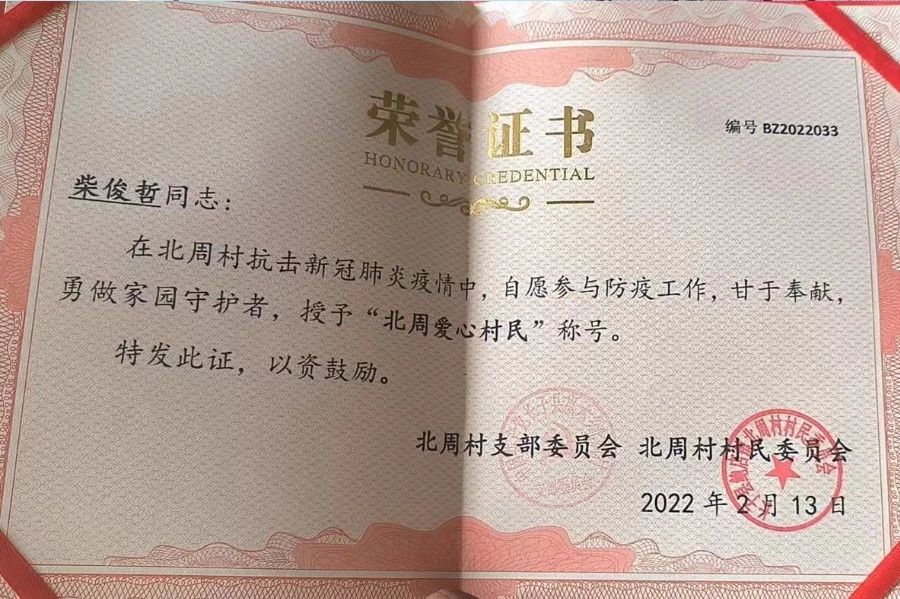 荣誉证书
编号 BZ2022033
HONORARY CREDENTIAL
柴俊哲同志：
在北周村抗击新冠肺炎疫情中，自愿参与防疫工作，甘于奉献，
勇做家园守护者，授予“北周爱心村民”称号。
特发此证，以资鼓励。
北周村支部委员会 北周村村民委员会
2022 年 2 月 13 日
北周村村民委员会